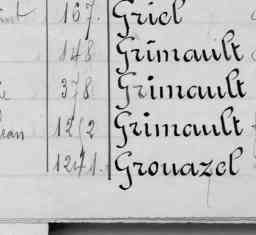 167. Griel
148 Grimault
378 Grimault
1252 Grimault
1271. Grouazel